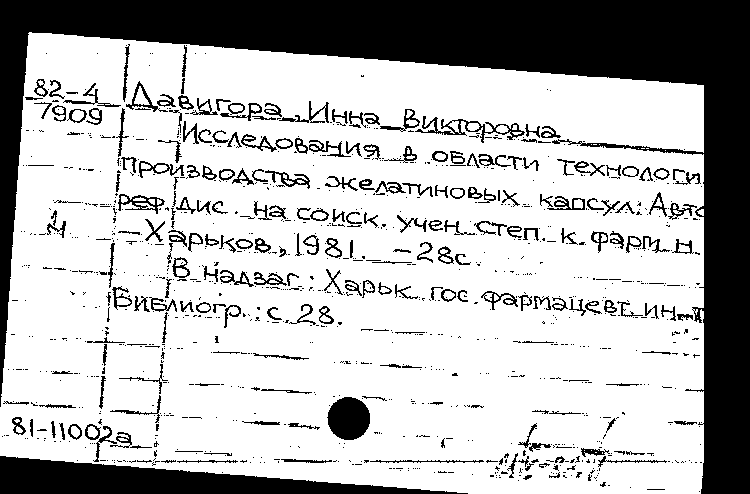 82-4
7909
Давигора, Инна Викторовна
Исследования в области технологи
производства желатиновых капсул: Авто
реф. дис. на соиск. учен. степ. к. фарм. н.
- Харьков, 1981. - 28с.
В надзаг.: Харьк. гос. фармацевт. ин-т
Библиогр.: с. 28.
81-11002а